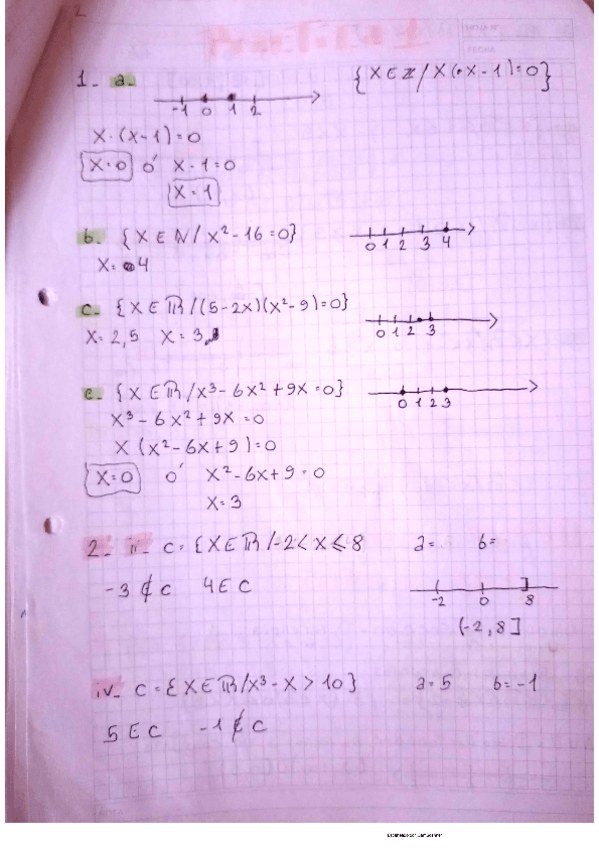 2
Practica 1
HOJA N°
FECHA
1- a- {X∈ℤ/X(·X-1)=0}
-1 0 1 2
X·(X-1)=0
X=0 ó X-1=0
X=1
b- {X∈ℕ/X²-16=0}
0 1 2 3 4
X= 4
c- {X∈ℝ/(5-2X)(X²-9)=0}
X=2,5 X=3
0 1 2 3
e- {X∈ℝ/X³-6X²+9X=0}
0 1 2 3
X³-6X²+9X=0
X(X²-6X+9)=0
X=0 ó X²-6X+9=0
X=3
2- ii- C={X∈ℝ/-2<X≤8 a= b=
-3∉C 4∈C
-2 0 8
(-2,8]
iv- C={X∈ℝ/X³-X>10} a=5 b=-1
5∈C -1∉C